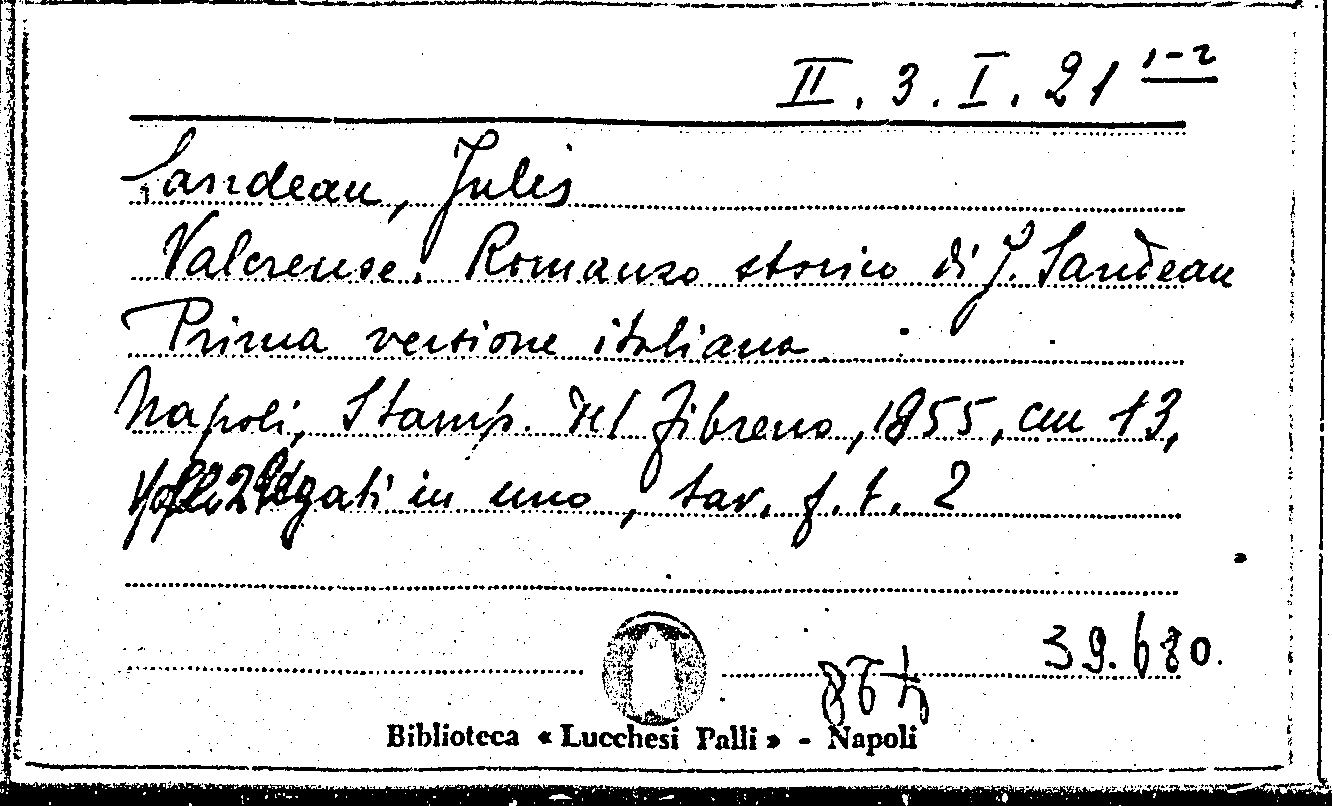 II. 3. I. 21 1-2
Sandeau, Jules
Valcreuse. Romanzo storico di J. Sandeau
Prima versione italiana
Napoli, Stamp. del Fibreno, 1855, cm 13,
Voll. 2 legati in uno, tav. f. t. 2
39.680.
Biblioteca « Lucchesi Palli » - Napoli